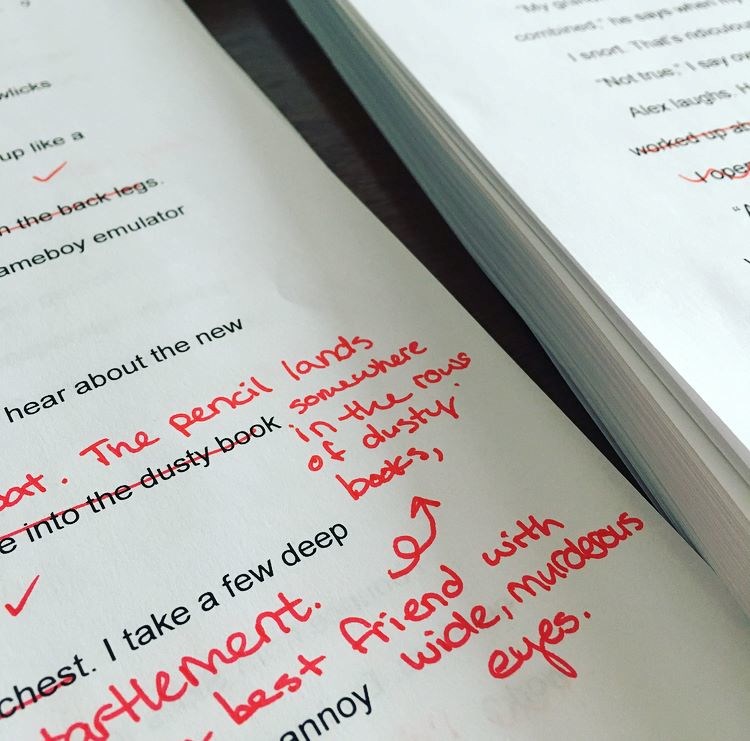 wlicks
up like a
n the back legs.
ameboy emulator
hear about the new
oat. The pencil lands
somewhere
in the rows
of dusty
books,
e into the dusty book
chest. I take a few deep
tartlement.
best friend with
wide, murderous
eyes.
annoy
"My grand
combined," he says when my
I snort. That's ridiculous
"Not true," I say ov
Alex laughs. H
worked up ab
I open
"A